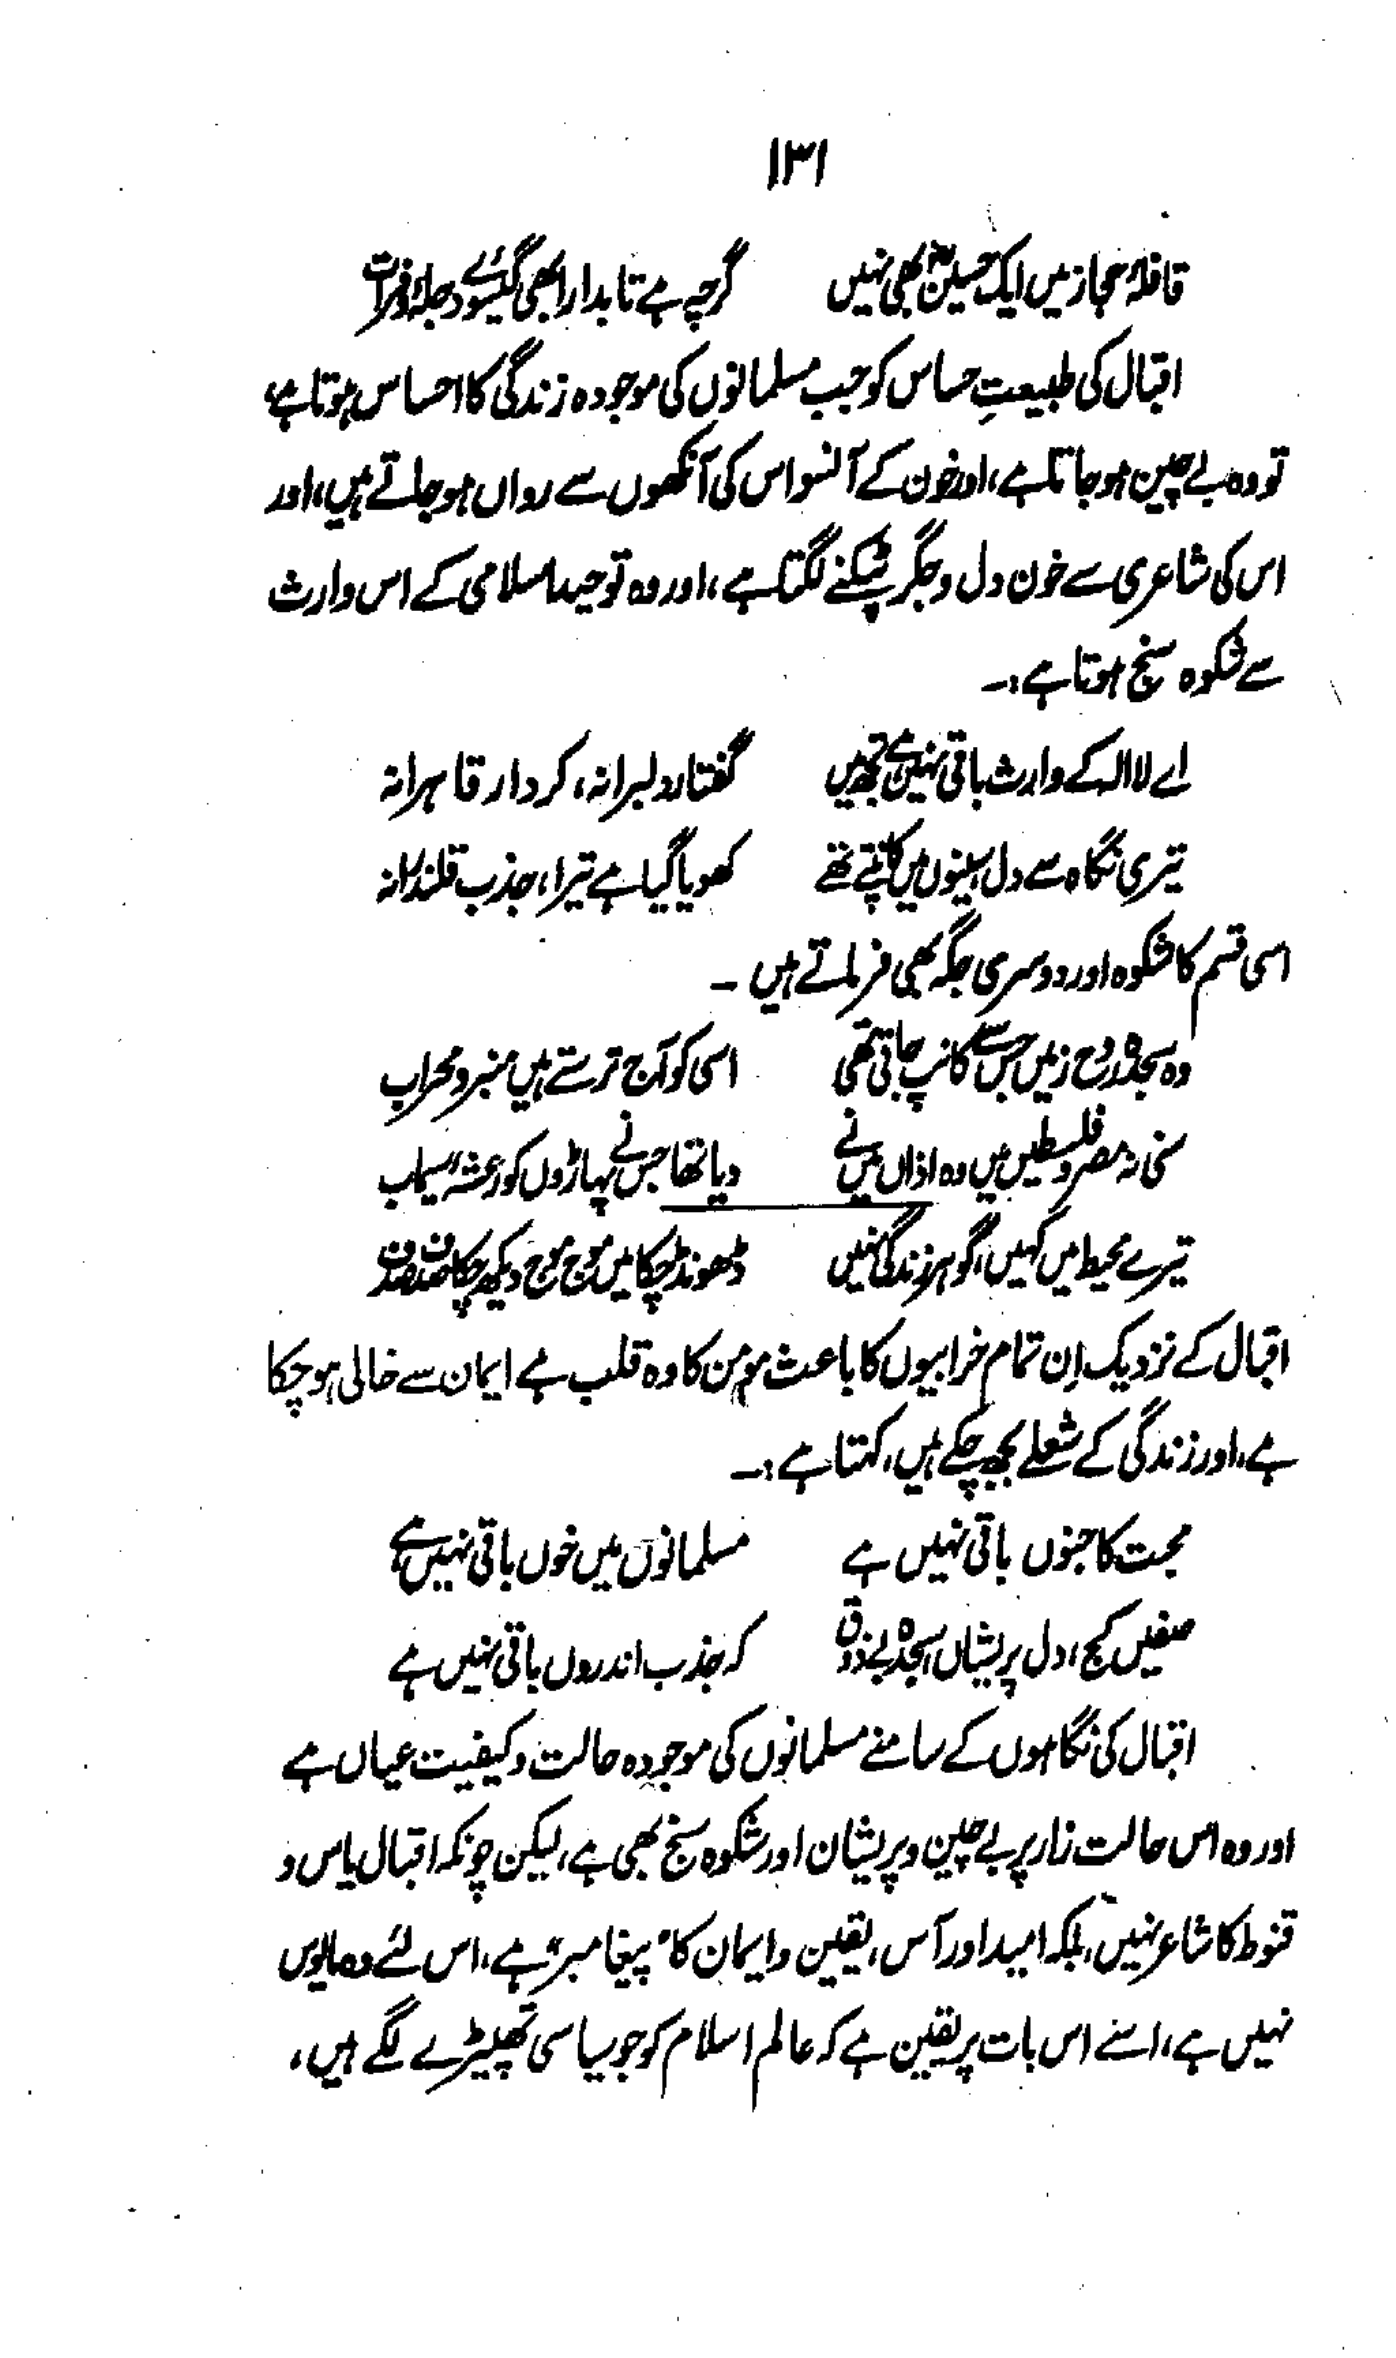 ۱۳۱
قافلۂ حجاز میں ایک حسینؓ بھی نہیں گرچہ ہے تابدار ابھی گیسوئے دجلہ و فرات
اقبال کی طبیعتِ حساس کو جب مسلمانوں کی موجودہ زندگی کا احساس ہوتا ہے،
تو وہ بے چین ہو جاتا ہے، اور خون کے آنسو اس کی آنکھوں سے رواں ہو جاتے ہیں، اور
اس کی شاعری سے خون دل و جگر ٹپکنے لگتا ہے، اور وہ توحید اسلامی کے اس وارث
سے شکوہ سنج ہوتا ہے:۔
اے لا الہ کے وارث باقی نہیں ہے تجھ میں گفتار دلبرانہ، کردار قاہرانہ
تیری نگاہ سے دل، سینوں میں کانپتے تھے کھویا گیا ہے تیرا، جذب قلندرانہ
اسی قسم کا شکوہ اور دوسری جگہ بھی فرماتے ہیں ۔
وہ سجدہ روح زمیں جس سے کانپ جاتی تھی اسی کو آج ترستے ہیں منبر و محراب
سنی نہ مصر و فلسطیں میں وہ اذاں میں نے دیا تھا جس نے پہاڑوں کو رعشۂ سیماب
تیرے محیط میں کہیں، گوہر زندگی نہیں ڈھونڈ چکا میں موج موج دیکھ چکا صدف صدف
اقبال کے نزدیک اِن تمام خرابیوں کا باعث مومن کا وہ قلب ہے ایمان سے خالی ہو چکا
ہے، اور زندگی کے شعلے بجھ چکے ہیں، کہتا ہے:۔
محبت کا جنوں باقی نہیں ہے مسلمانوں میں خوں باقی نہیں ہے
صفیں کج، دل پریشاں، سجدہ بے ذوق کہ جذب اندروں باقی نہیں ہے
اقبال کی نگاہوں کے سامنے مسلمانوں کی موجودہ حالت و کیفیت عیاں ہے
اور وہ اس حالت زار پر بے چین و پریشان اور شکوہ سنج بھی ہے، لیکن چونکہ اقبال یاس و
قنوط کا شاعر نہیں، بلکہ امید اور آس، یقین و ایمان کا "پیغامبر" ہے، اس لئے وہ مایوس
نہیں ہے، اسنے اس بات پر یقین ہے کہ عالم اسلام کو جو سیاسی تھپیڑے لگے ہیں،